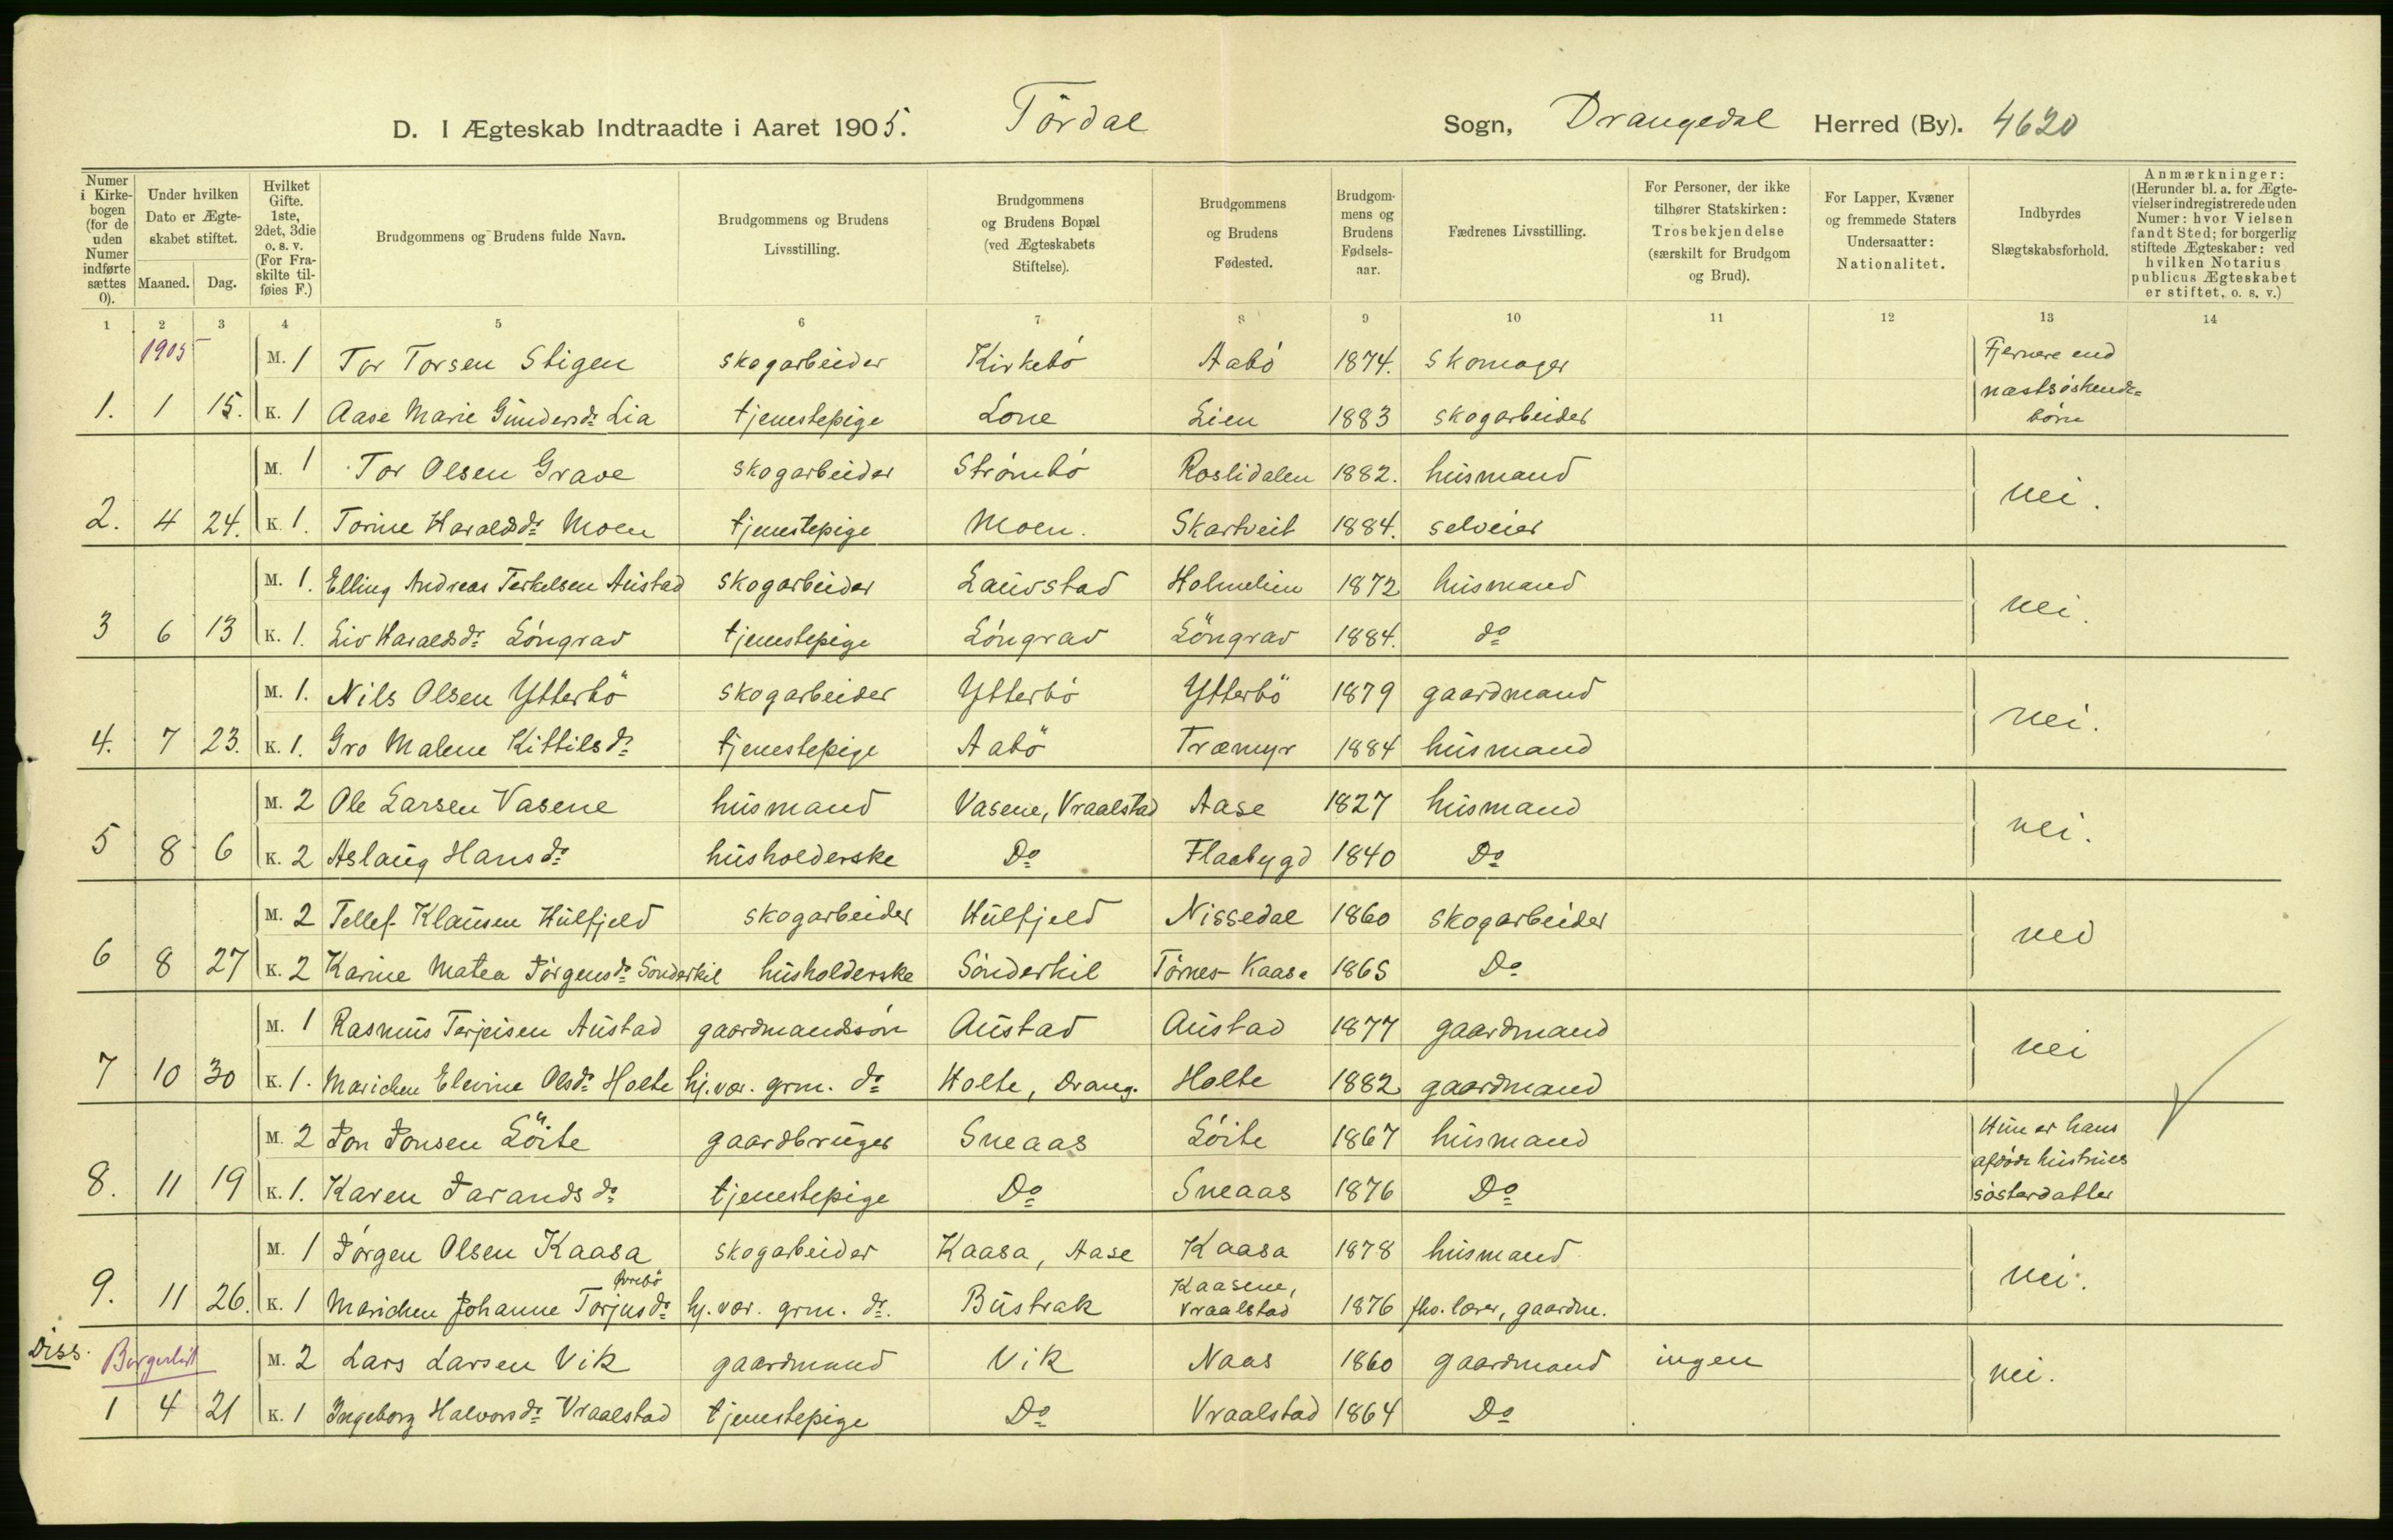 D. I Ægteskab Indtraadte i Aaret 1905. Tördal Sogn, Drangedal Herred (By). 4620
Numer i Kirkebogen (for de uden Numer indførte sættes 0). | Under hvilken Dato er Ægteskabet stiftet. Maaned. Dag. | Hvilket Gifte. 1ste, 2det, 3die o. s. v. (For Fraskilte tilføies F.) | Brudgommens og Brudens fulde Navn. | Brudgommens og Brudens Livsstilling. | Brudgommens og Brudens Bopæl (ved Ægteskabets Stiftelse). | Brudgommens og Brudens Fødested. | Brudgommens og Brudens Fødselsaar. | Fædrenes Livsstilling. | For Personer, der ikke tilhører Statskirken: Trosbekjendelse (særskilt for Brudgom og Brud). | For Lapper, Kvæner og fremmede Staters Undersaatter: Nationalitet. | Indbyrdes Slægtskabsforhold. | Anmærkninger: (Herunder bl. a. for Ægtevielser indregistrerede uden Numer: hvor Vielsen fandt Sted; for borgerlig stiftede Ægteskaber: ved hvilken Notarius publicus Ægteskabet er stiftet, o. s. v.)
1 2 3 4 5 6 7 8 9 10 11 12 13 14
1905 M. 1 Tor Torsen Stigen skogarbeider Kirkebó Aabó 1874. Skomager Fjernere end
1. 1 15. K. 1 Aase Marie Gundersdr Lia tjenestepige Lone Lien 1883 skogarbeider næstsöskende= börn
M. 1 Tor Olsen Grave skogarbeider Strömbó Roslidalen 1882. husmand
2. 4 24. K. 1. Torine Haraldsdr Moen tjenestepige Moen. Skartveit 1884. selveier nei.
M. 1. Elling Andreas Terkelsen Austad skogarbeider Lauvstad Holmelien 1872 husmand
3 6 13 K. 1. Liv Haraldsdr Löngrav tjenestepige Löngrav Löngrav 1884. do nei.
M. 1. Nils Olsen Ytterbö skogarbeider Ytterbó Ytterbö 1879 gaardmand
4. 7 23. K. 1. Gro Malene Kittilsdr tjenestepige Aabö Træmyr 1884 husmand nei.
M. 2 Ole Larsen Vasene husmand Vasene, Vraalstad Aase 1827 husmand
5 8 6 K. 2 Aslaug Hansdr husholderske Do Flaabygd 1840 Do nei.
M. 2 Tellef Klausen Hulfjeld skogarbeider Hulfjeld Nissedal 1860 skogarbeider
6 8 27 K. 2 Karine Matea Jörgensdr Sönderkil husholderske Sönderkil Törnes Kaase 1865 Do nei
M. 1 Rasmus Terjeisen Austad gaardmandssön Austad Austad 1877 gaardmand
7 10 30 K. 1. Marichen Elevine Olsdr Holte hj.vær. grm. dr Holte, Drang. Holte 1882 gaardmand nei
M. 2 Jon Jonsen Löite gaardbruger Sneaas Löite 1867 husmand Hun er hans
8. 11 19 K. 1. Karen Tarandsdr tjenestepige Do Sneaas 1876 Do afdöde hustrues sösterdatter
M. 1 Jörgen Olsen Kaasa skogarbeider Kaasa, Aase Kaasa 1878 husmand
9. 11 26. K. 1 Marichen Johanne Torjusdr Övrebö hj. vær. grm. dr. Bustrak Kaasene, Vraalstad 1876 fho. lærer, gaardm. nei.
Diss. Borgerligt M. 2 Lars Larsen Vik gaardmand Vik Naas 1860 gaardmand ingen
1 4 21 K. 1 Ingeborg Halvorsdr Vraalstad tjenestepige Do Vraalstad 1864 Do nei.